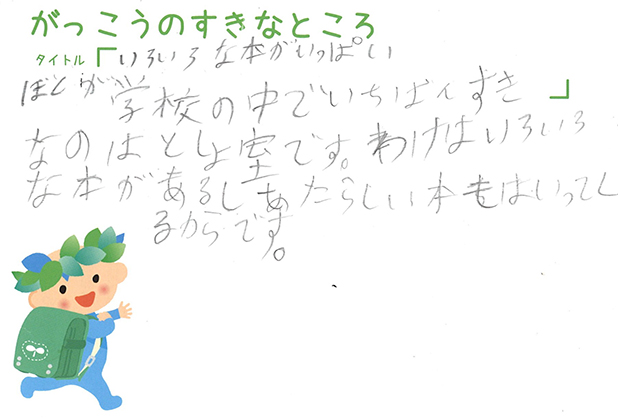 がっこうのすきなところ
タイトル「いろいろな本がいっぱい」
ぼくが学校の中でいちばんすき
なのはとしょ室です。わけはいろいろ
な本があるしあたらしい本もはいってく
るからです。